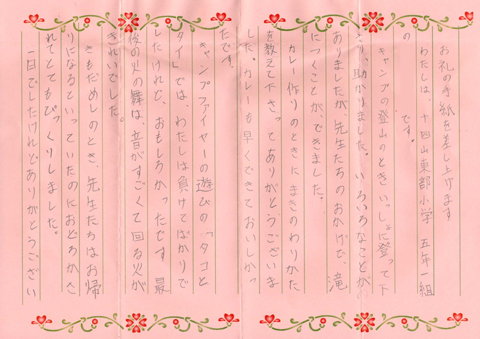 お礼の手紙を差し上げます
わたしは、十四山東部小学 五年一組
の　　　です。
キャンプの登山のときいっしょに登って下
さり、助かりました。いろいろなことが
ありましたが先生たちのおかげで、滝
につくことができました。
カレー作りのときにまきのわりかた
を教えて下さってありがとうございま
した。カレーも早くできておいしかっ
たです。
キャンプファイヤーの遊びの「タコと
タイ」では、わたしは負けてばかりで
したけれど、おもしろかったです 最
後の火の舞は、音がすごくて回る火が
きれいでした。
きもだめしのとき、先生たちはお帰
りになるといっていたのにおどろかさ
れてとてもびっくりしました。
一日でしたけれどありがとうござい